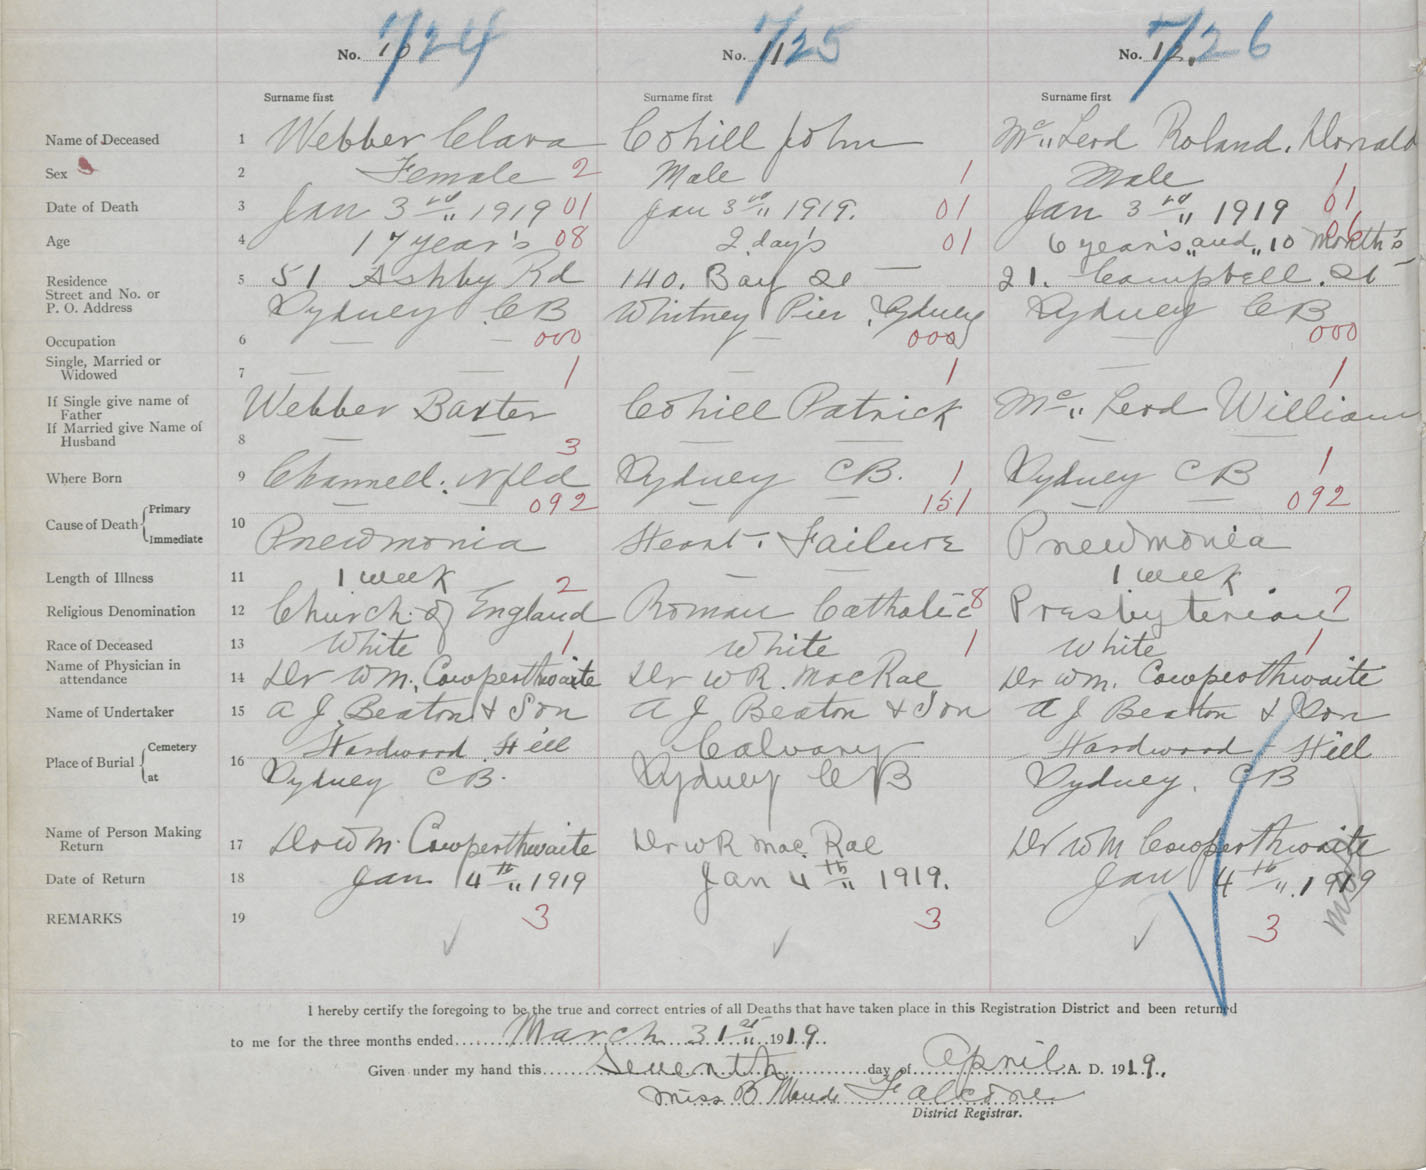 724 725 726
No. 10 No. 11 No. 12.
Surname first Surname first Surname first
Name of Deceased 1 Webber Clara Cohill John Mc„ Leod Roland. Donald
Sex 2 Female 2 Male 1 Male 1
Date of Death 3 Jan 3rd„ 1919 01 Jan 3rd„ 1919. 01 Jan 3rd„ 1919 01
Age 4 17 year's 08 2 day's 01 6 year's „and„ 10 Month's 06
Residence
Street and No. or
P. O. Address
5 51 Ashby Rd 140. Bay St — 21. Campbell. St —
Sydney CB Whitney Pier, Sydney Sydney CB
Occupation 6 — — 000 — 000 — 000
Single, Married or
Widowed
7 — — 1 — 1 — 1
If Single give name of
Father
If Married give Name of
Husband
8 Webber Baxter Cohill Patrick Mc„ Leod William
— — — — — —
Where Born 9 Channell. Nfld 3 Sydney CB. 1 Sydney CB 1
Cause of Death Primary — — 092 — — 151 — — 092
Immediate 10 Pneumonia Heart. Failure Pneumonia
Length of Illness 11 1 week — — 1 week
Religious Denomination 12 Church of England 2 Roman Catholic 8 Presbyterian 7
Race of Deceased 13 White 1 White 1 White 1
Name of Physician in
attendance
14 Dr Wm. Cowperthwaite Dr W R. MacRae Dr Wm. Cowperthwaite
Name of Undertaker 15 A J Beaton & Son A J Beaton & Son A J Beaton & Son
Place of Burial Cemetery Hardwood Hill Calvary Hardwood Hill
at 16 Sydney CB. Sydney CB Sydney, CB
Name of Person Making
Return
17 Dr Wm. Cowperthwaite Dr W R Mac Rae Dr Wm Cowperthwaite
Date of Return 18 Jan 4th„ 1919 Jan 4th„ 1919. Jan 4th„. 1919
REMARKS 19 3 3 3
✓ ✓ ✓
I hereby certify the foregoing to be the true and correct entries of all Deaths that have taken place in this Registration District and been returned
to me for the three months ended March 31st„ 1919.
Given under my hand this Seventh day of April A. D. 1919.
Miss B Maude Falconer
District Registrar.